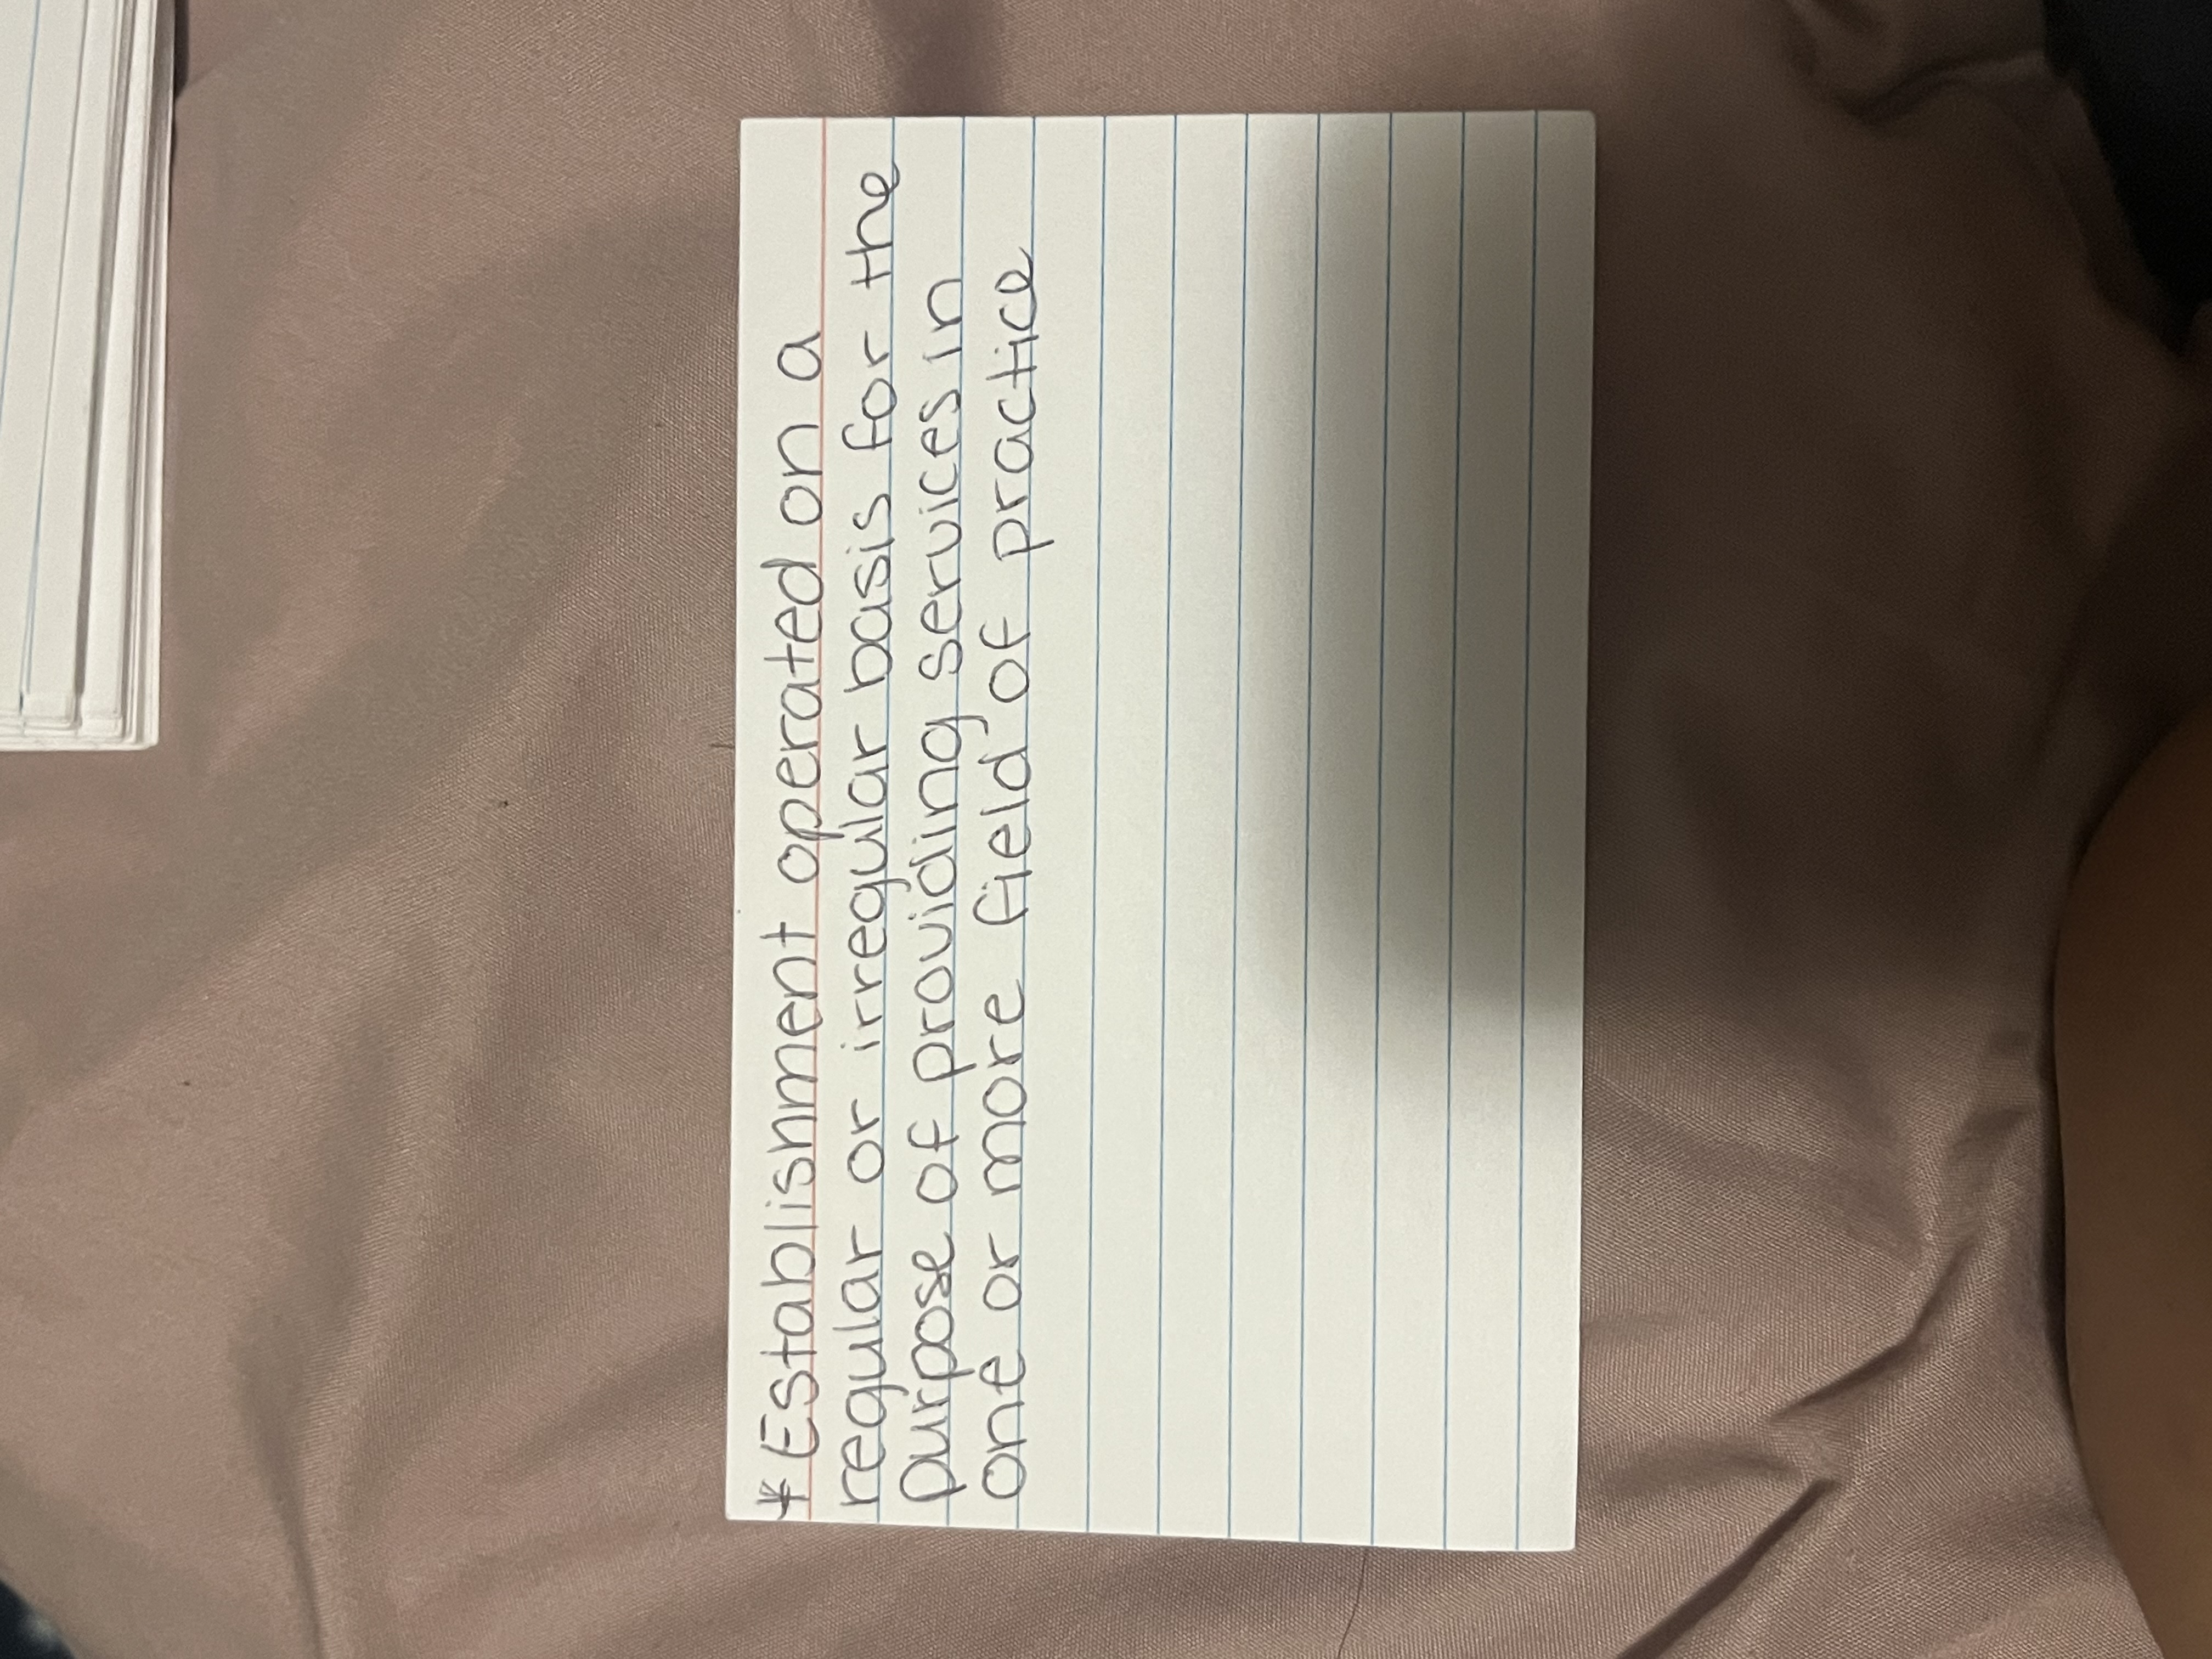 * Establishment operated on a
regular or irregular basis for the
purpose of providing services in
one or more field of practice